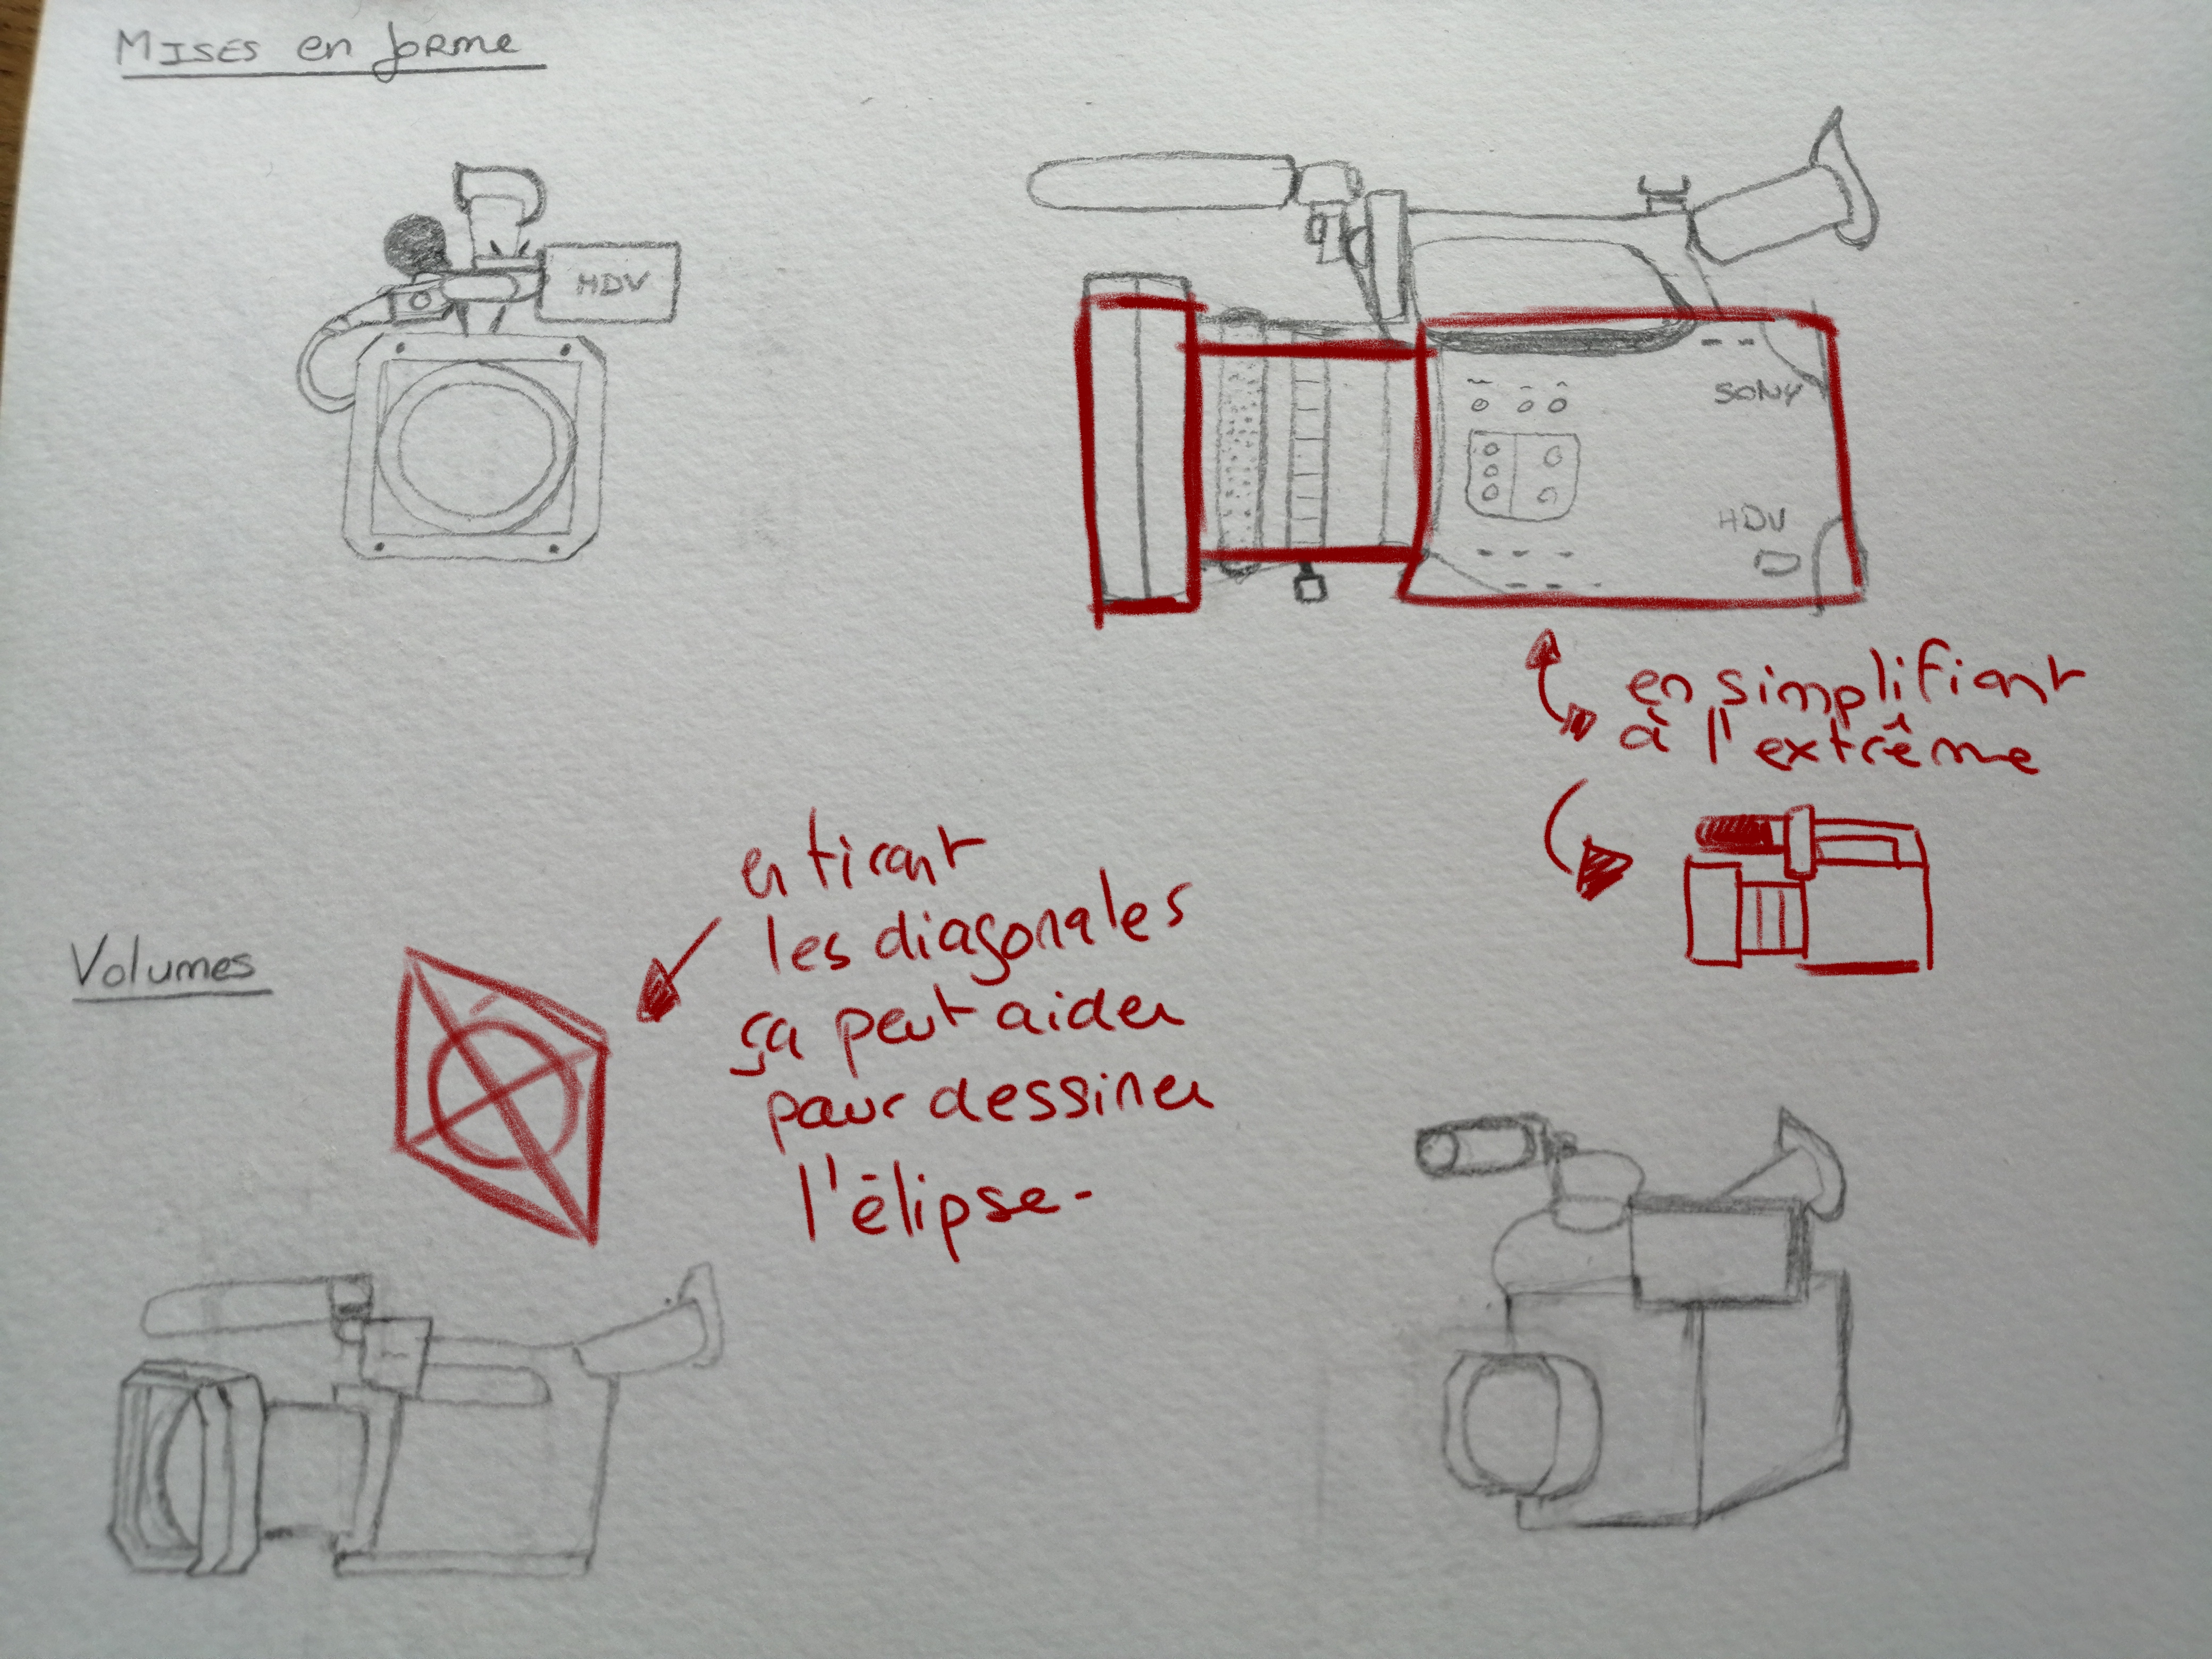 MISES en forme
HDV
SONY
HDV
en simplifiant
à l'extrême
en tirant
les diagonales
ça peut aider
pour dessiner
l'élipse-
Volumes